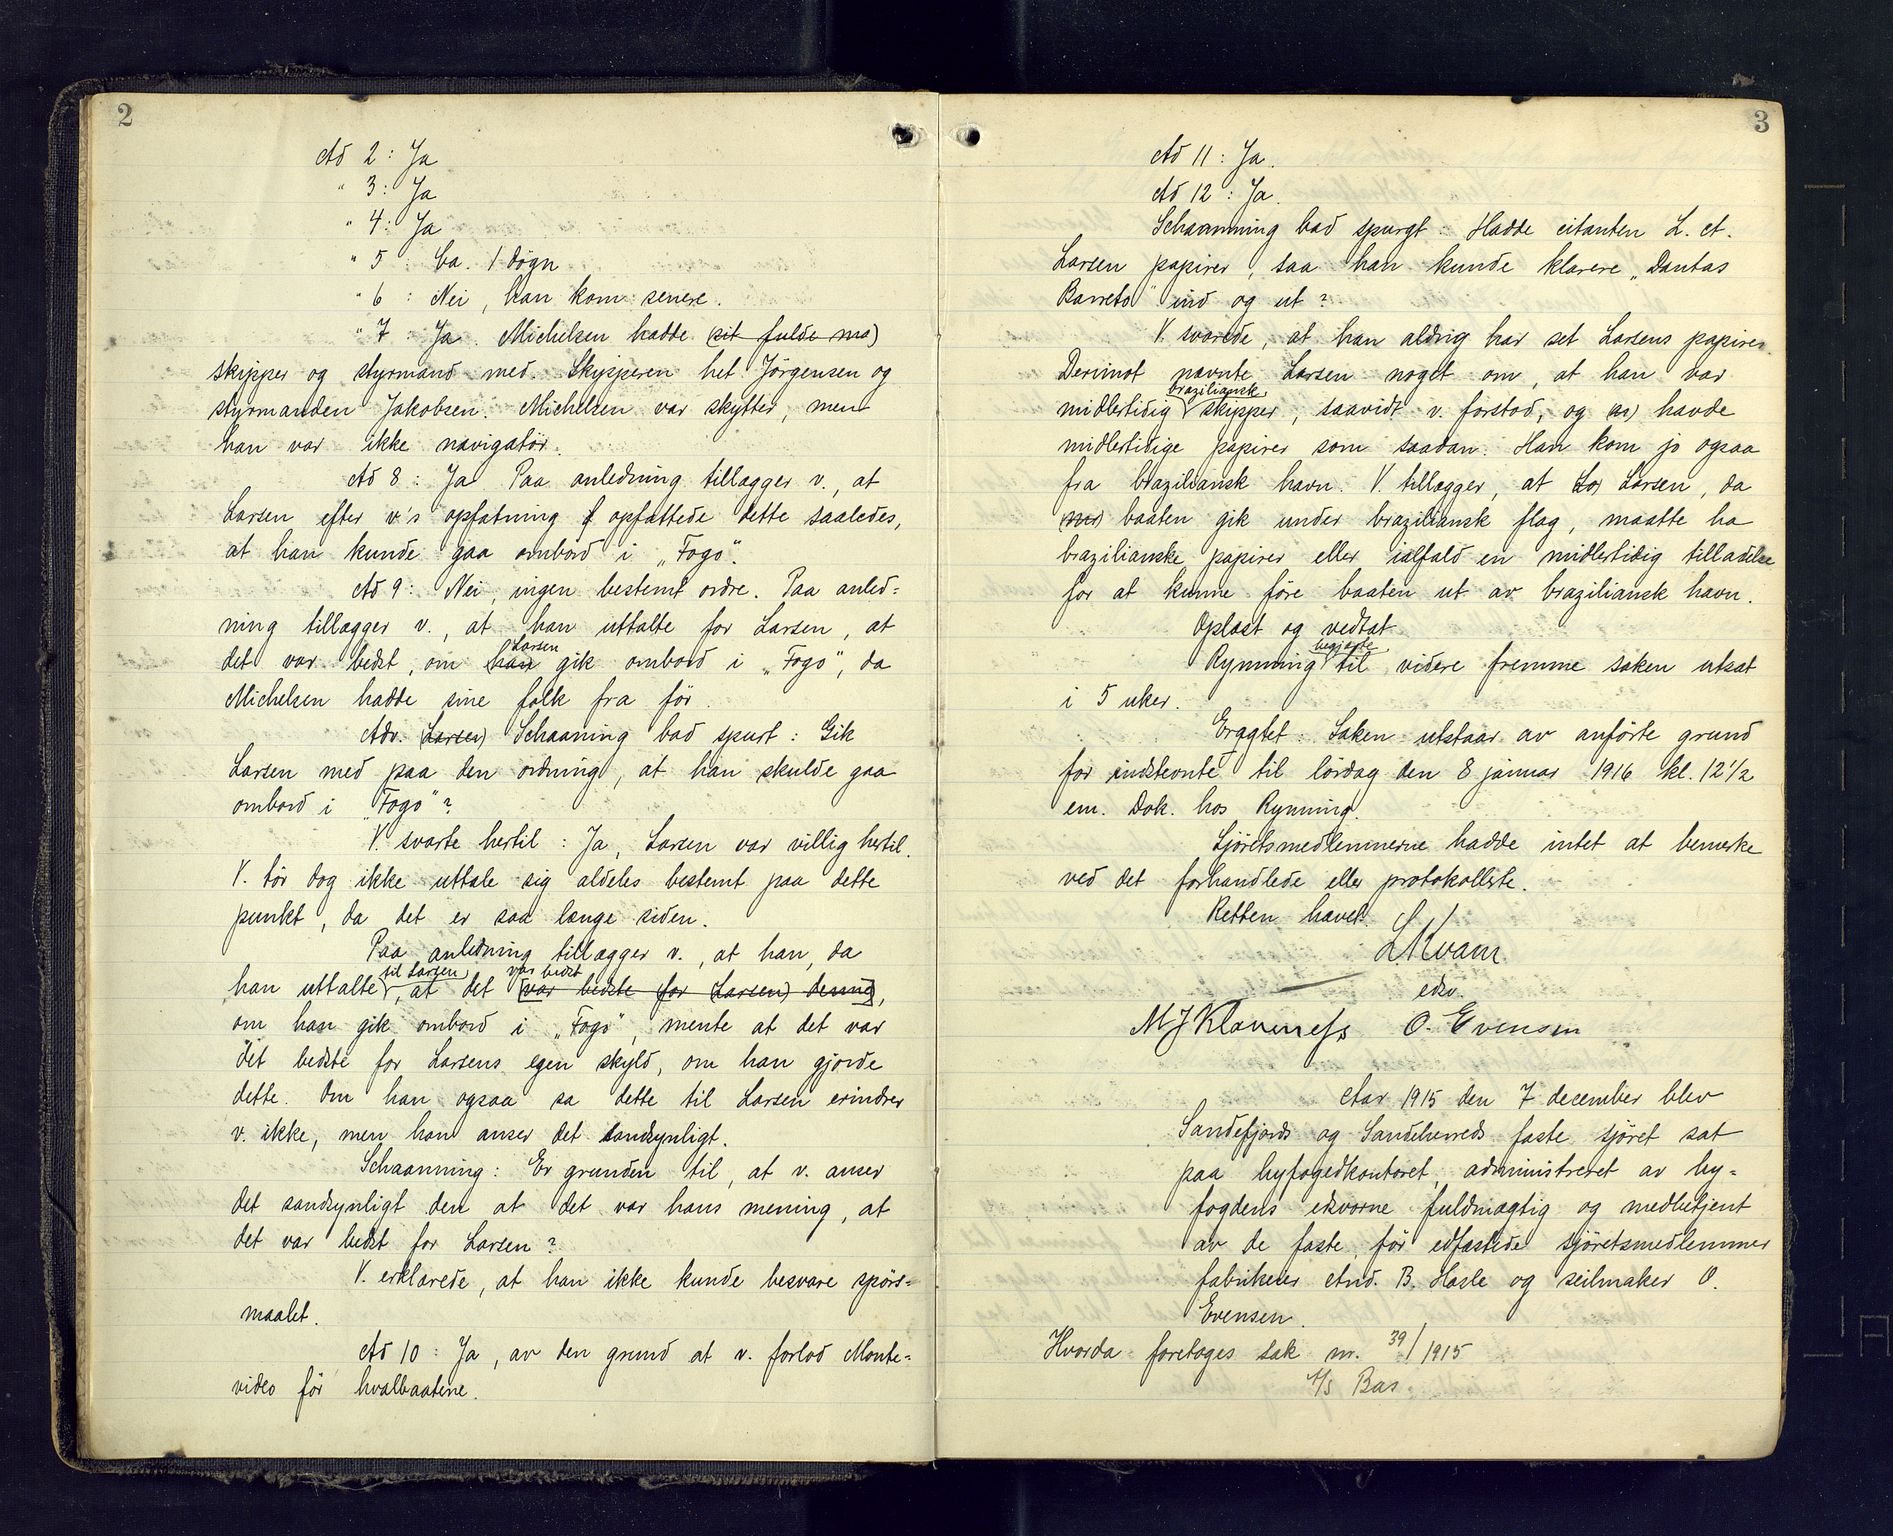 2
Ad 2 : Ja
" 3 : Ja
" 4 : Ja
" 5 : Ca. 1 døgn
" 6 : Nei, han kom senere.
" 7 : Ja. Michelsen hadde (sit fulde ma)
skipper og styrmand med. Skipperen het Jørgensen og
styrmanden Jakobsen. Michelsen var skytter, men
han var ikke navigatør.
Ad 8 : Ja. Paa anledning tillægger v., at
Larsen efter v's opfatning opfattede dette saaledes,
at han kunde gaa ombord i „Fogo".
Ad 9 : Nei, ingen bestemt ordre. Paa anled=
ning tillægger v., at han uttalte for Larsen, at
det var bedst, om (han) Larsen gik ombord i „Fogo", da
Michelsen hadde sine folk fra før.
Adv. (Larsen) Schaaning bad spurt : Gik
Larsen med paa den ordning, at han skulde gaa
ombord i „Fogo"?
V. svarte hertil : Ja, Larsen var villig hertil.
V. tør dog ikke uttale sig aldeles bestemt paa dette
punkt, da det er saa længe siden.
Paa anledning tillægger v., at han, da
han uttalte til Larsen, at det var bedst (var bedste for (Larsen) denne),
om han gik ombord i „Fogo", mente at det var
det bedste for Larsens egen skyld, om han gjorde
dette. Om han ogsaa sa dette til Larsen erindrer
v. ikke, men han anser det sandsynligt.
Schaanning : Er grunden til, at v. anser
det sandsynligt den at det var hans mening, at
det var bedst for Larsen ?
V. erklærede, at han ikke kunde besvare spørs=
maalet.
Ad 10 : Ja, av den grund at v. forlod Monte=
video før hvalbaatene.
3
Ad 11 : Ja.
Ad 12 : Ja.
Schaanning bad spurgt : Hadde citanten L. et.
Larsen papirer, saa han kunde klarere „Dantas
Barreto" ind og ut ?
V. svarede, at han aldrig har set Larsens papirer.
Derimot nævnte Larsen noget om, at han var
midlertidig braziliansk skipper, saavidt v. forstod, og havde
midlertidige papirer som saadan. Han kom jo ogsaa
fra braziliansk havn. V. tillægger, at Larsen, da
baaten gik under braziliansk flag, maatte ha
brazilianske papirer eller ialfald en midlertidig tilladelse
for at kunne føre baaten ut av braziliansk havn.
Oplæst og vedtat
Rynning begjærte til videre fremme saken utsat
i 5 uker.
Eragtet : Saken utstaar av anførte grund
for indstevnte til lørdag den 8 januar 1916 kl. 12 1/2
em. Dok. hos Rynning.
Sjøretsmedlemmerne hadde intet at bemerke
ved det forhandlede eller protokollerte.
Retten hævet.
L. Kvam
edsv.
M J Klaveness O. Evensen
Aar 1915 den 7 december blev
Sandefjords og Sandeherreds faste sjøret sat
paa byfogedkontoret, administreret av by=
fogdens edsvorne fuldmægtig og medbetjent
av de faste, før edfæstede sjøretsmedlemmer
fabrikeier And. B. Hasle og seilmaker O.
Evensen.
Hvorda foretoges sak nr. 39/1915
A/S Bas